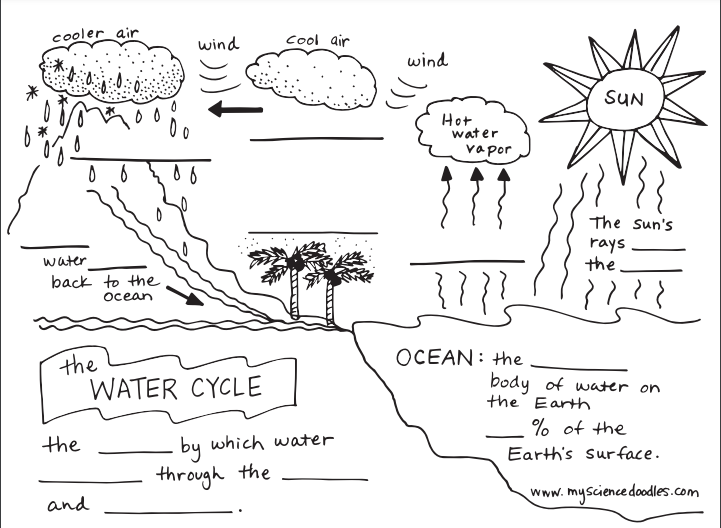 cooler air
wind
cool air
wind
SUN
Hot
water
vapor
The sun's
rays ______
the ______
______
water ______
back to the
ocean
the
WATER CYCLE
the ______ by which water
______ through the ______
and ______.
OCEAN: the ______
body of water on
the Earth
___ % of the
Earth's surface.
www.mysciencedoodles.com